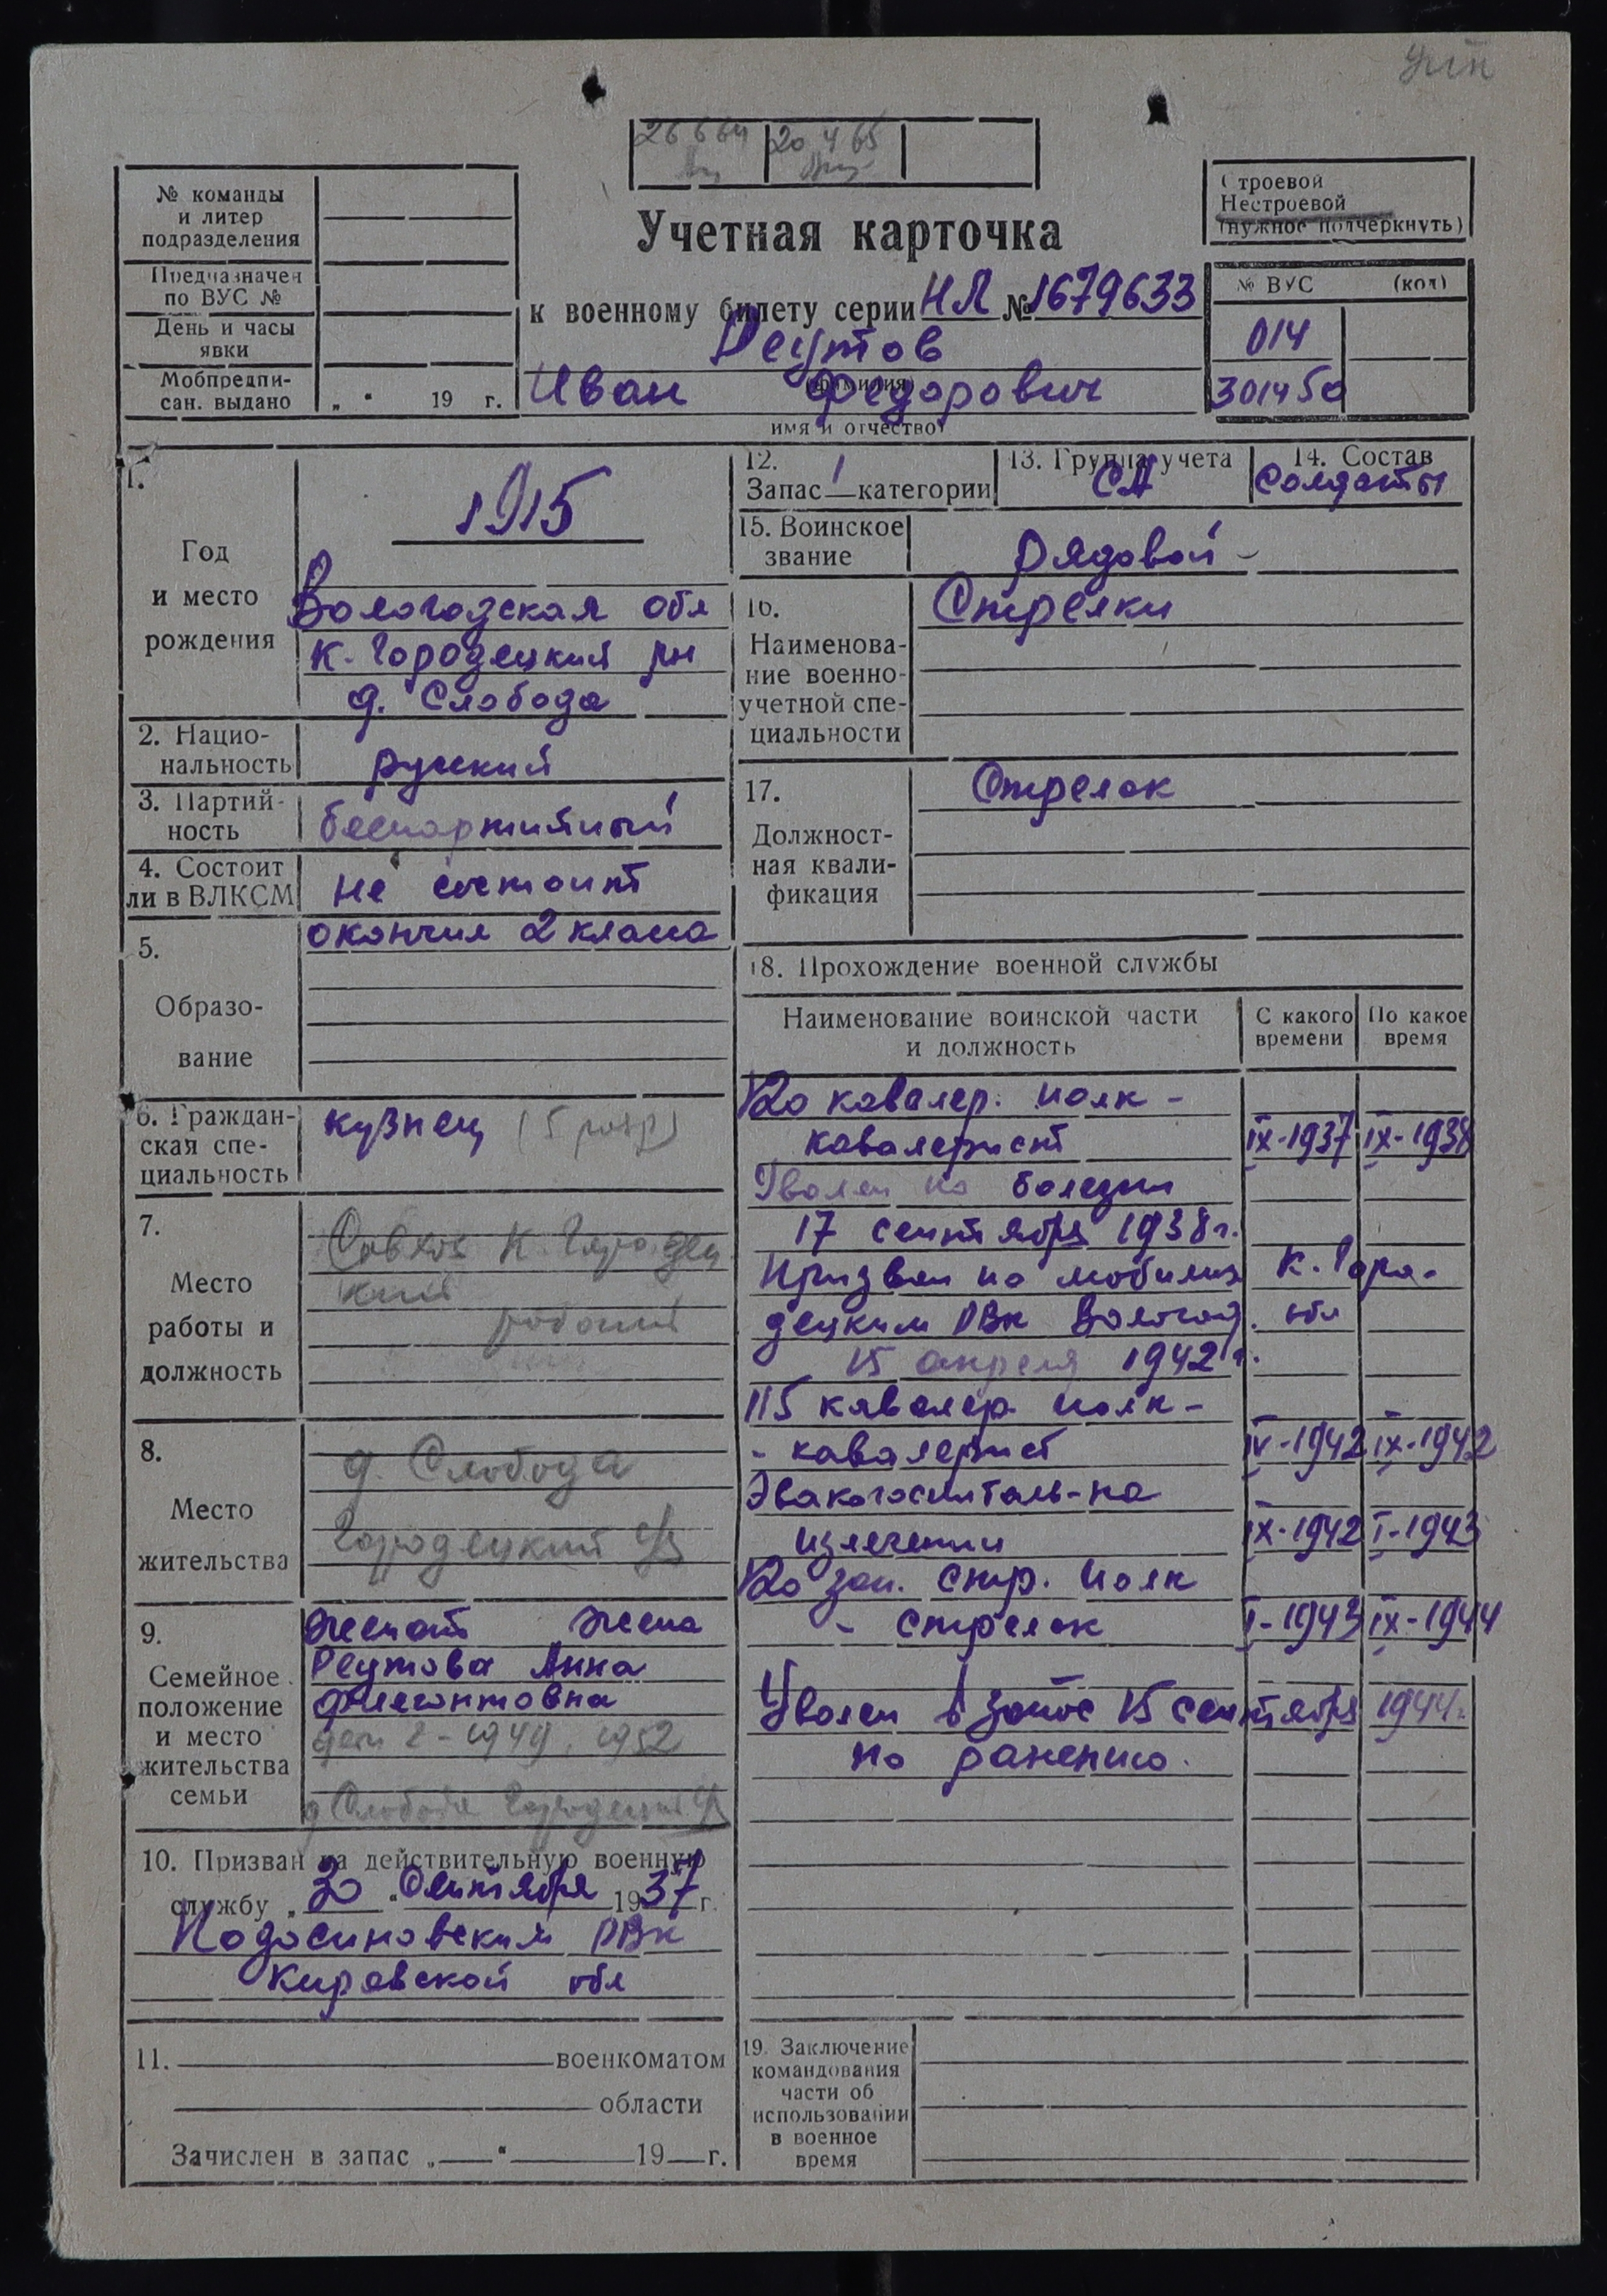 26 6 64
20 4 65
№ команды
и литер
подразделения
Предназначен
по ВУС №
День и часы
явки
Мобпредпи-
сан. выдано „ “ 19 г.
Учетная карточка
к военному билету серии НЛ № 1679633
Реутов
(фамилия)
Иван Федорович
имя и отчество
Строевой
Нестроевой
(нужное подчеркнуть)
№ ВУС (код)
014
301450
1.
Год
и место
рождения
1915
Вологодская обл
К-Городецкий рн
д. Слобода
2. Нацио-
нальность
русский
3. Партий-
ность
беспартийный
4. Состоит
ли в ВЛКСМ
не состоит
5.
Образо-
вание
окончил 2 класса
6. Граждан-
ская спе-
циальность
кузнец (5 разр)
7.
Место
работы и
должность
Совхоз К. Городец
кий
рабочий
8.
Место
жительства
д. Слобода
Городецкий с/с
9.
Семейное
положение
и место
жительства
семьи
женат жена
Реутова Анна
Флегонтовна
дети 2 - 1949, 1952
д Слобода Городецкий с/с
10. Призван на действительную военную
службу „ 30 “ Сентября 1937 г.
Подосиновским РВК
Кировской обл
11. военкоматом
области
Зачислен в запас „ “ 19 г.
12.
Запас 1 категории
13. Группа учета
СА
14. Состав
Солдаты
15. Воинское
звание
Рядовой
16.
Наименова-
ние военно-
учетной спе-
циальности
Стрелки
17.
Должност-
ная квали-
фикация
Стрелок
18. Прохождение военной службы
Наименование воинской части
и должность
С какого
времени
По какое
время
120 кавалер. полк -
кавалерист IX-1937 IX-1938
Уволен по болезни
17 сентября 1938 г.
Призван по мобилиз К. Горо-
децким РВК Вологод. обл
15 апреля 1942 г.
115 кавалер. полк -
- кавалерист IV-1942 IX-1942
Эвакогоспиталь - на
излечении IX-1942 I-1943
120 зап. стр. полк
- стрелок I-1943 IX-1944
Уволен в запас 15 сентября 1944 г.
по ранению.
19. Заключение
командования
части об
использовании
в военное
время